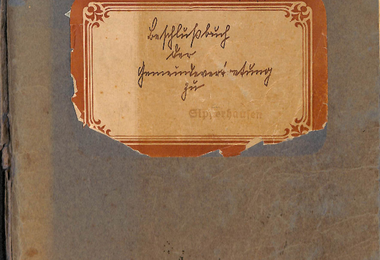 Beschlußbuch
der
Gemeindevertretung
zu
Sipperhausen